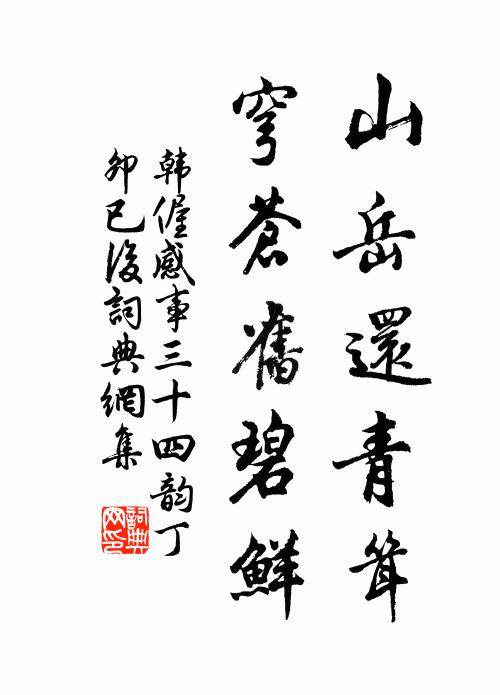 山岳還青耸
穹蒼舊碧鮮
韩偓感事三十四韵丁
卯已後詞典網集
詞典网印